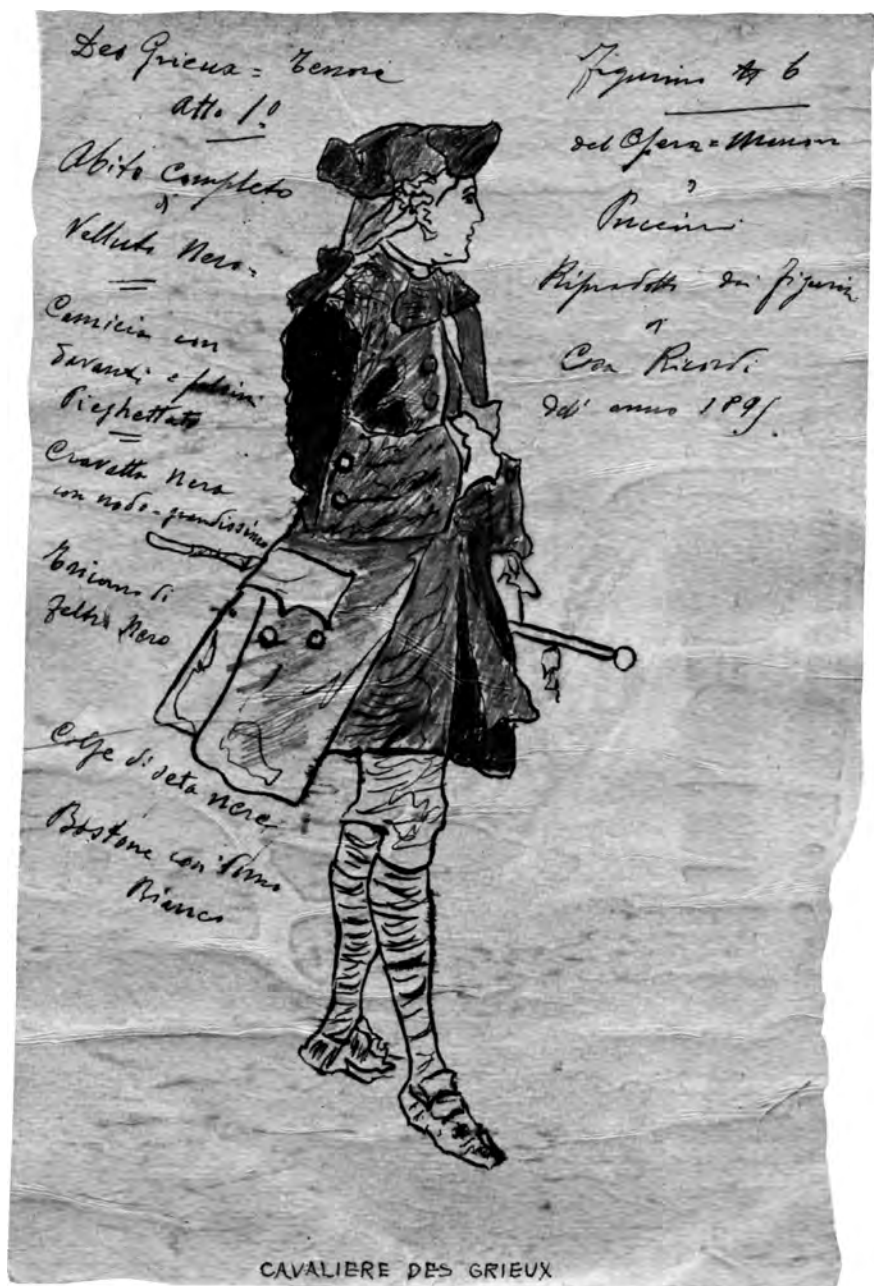 Des Grieux = Tenore
Atto 1º
Abito Completo
di
Velluto Nero =
Camicia con
davanti e
Pieghettato
Cravatta Nera
con nodo-grandissimo
Tricorno di
feltro Nero
Calze di seta nere
Bastone con Pomo
Bianco
Figurino N 6
del Opera = Manon
di
Puccini
Riprodotti dai figurini
di
Casa Ricordi
dell' anno 189
CAVALIERE DES GRIEUX